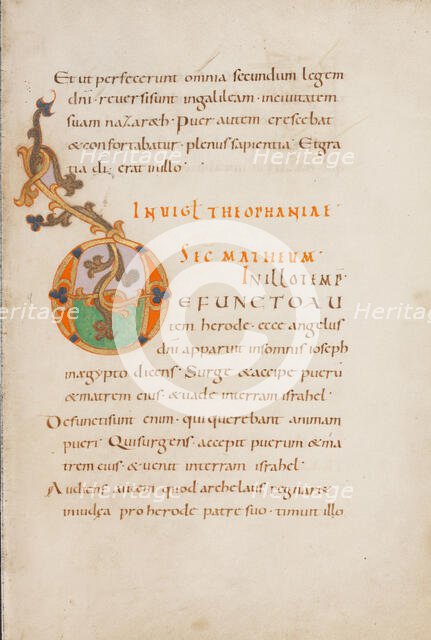 Et ut perfecerunt omnia secundum legem
dni · reversi sunt in galileam · in civitatem
suam nazareth · Puer autem crescebat
& confortabatur · plenus sapientia · Et gra
tia di erat in illo ·
IN VIGL THEOPHANIAE
SEC MATHEUM
IN ILLO TEMP
DEFUNCTO AU
tem herode · ecce angelus
dni apparuit in somnis ioseph
in ægypto dicens · Surge & accipe puerū
& matrem eius · & vade in terram israhel ·
Defuncti sunt enim · qui querebant animam
pueri · Qui surgens · accepit puerum & ma
trem eius · & venit in terram israhel ·
Audiens autem quod archelaus regnaret
in iudęa pro herode patre suo · timuit illo
Heritage Heritage
Images Images
Heritage Heritage
Images Images
Heritage Heritage
Images Images
©